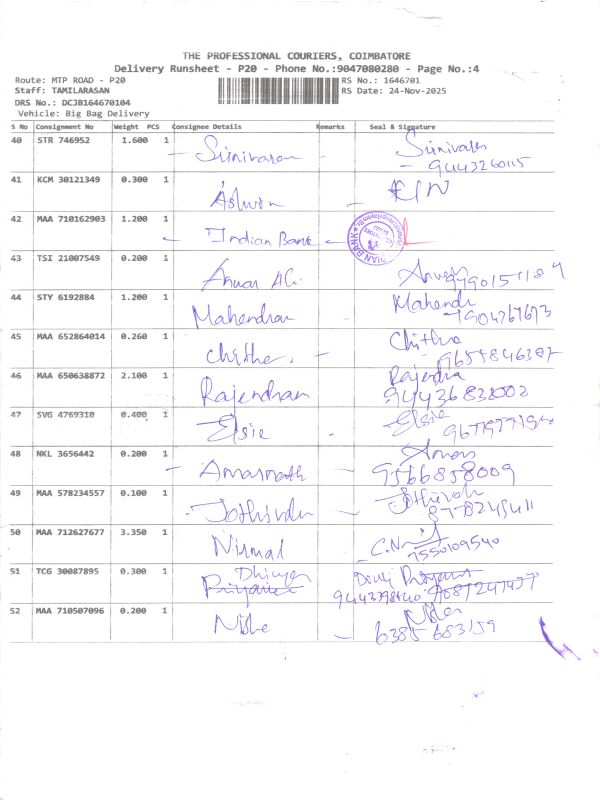 THE PROFESSIONAL COURIERS, COIMBATORE
Delivery Runsheet - P20 - Phone No.:9047080280 - Page No.:4
Route: MTP ROAD - P20 RS No.: 1646701
Staff: TAMILARASAN RS Date: 24-Nov-2025
DRS No.: DCJB164670104
Vehicle: Big Bag Delivery
S No Consignment No Weight PCS Consignee Details Remarks Seal & Signature
40 STR 746952 1.600 1 Srinivasan Srinivasan
9443260115
41 KCM 30121349 0.300 1 Ashwin
42 MAA 710162903 1.200 1 Indian Bank INDIAN BANK
43 TSI 21007549 0.200 1 Anwar Ali
44 STY 6192884 1.200 1 Mahendran Mahendr
7904267673
45 MAA 652864014 0.260 1 Chithra Chithra
9655846307
46 MAA 650638872 2.100 1 Rajendran Rajendra
94436832002
47 SVG 4769310 0.400 1 Elsie Elsie
48 NKL 3656442 0.200 1 Amarnath
9566858009
49 MAA 578234557 0.100 1
50 MAA 712627677 3.350 1 Nirmal
7550109540
51 TCG 30087895 0.300 1 Priyanka
52 MAA 710507096 0.200 1 Nisha
6385683159